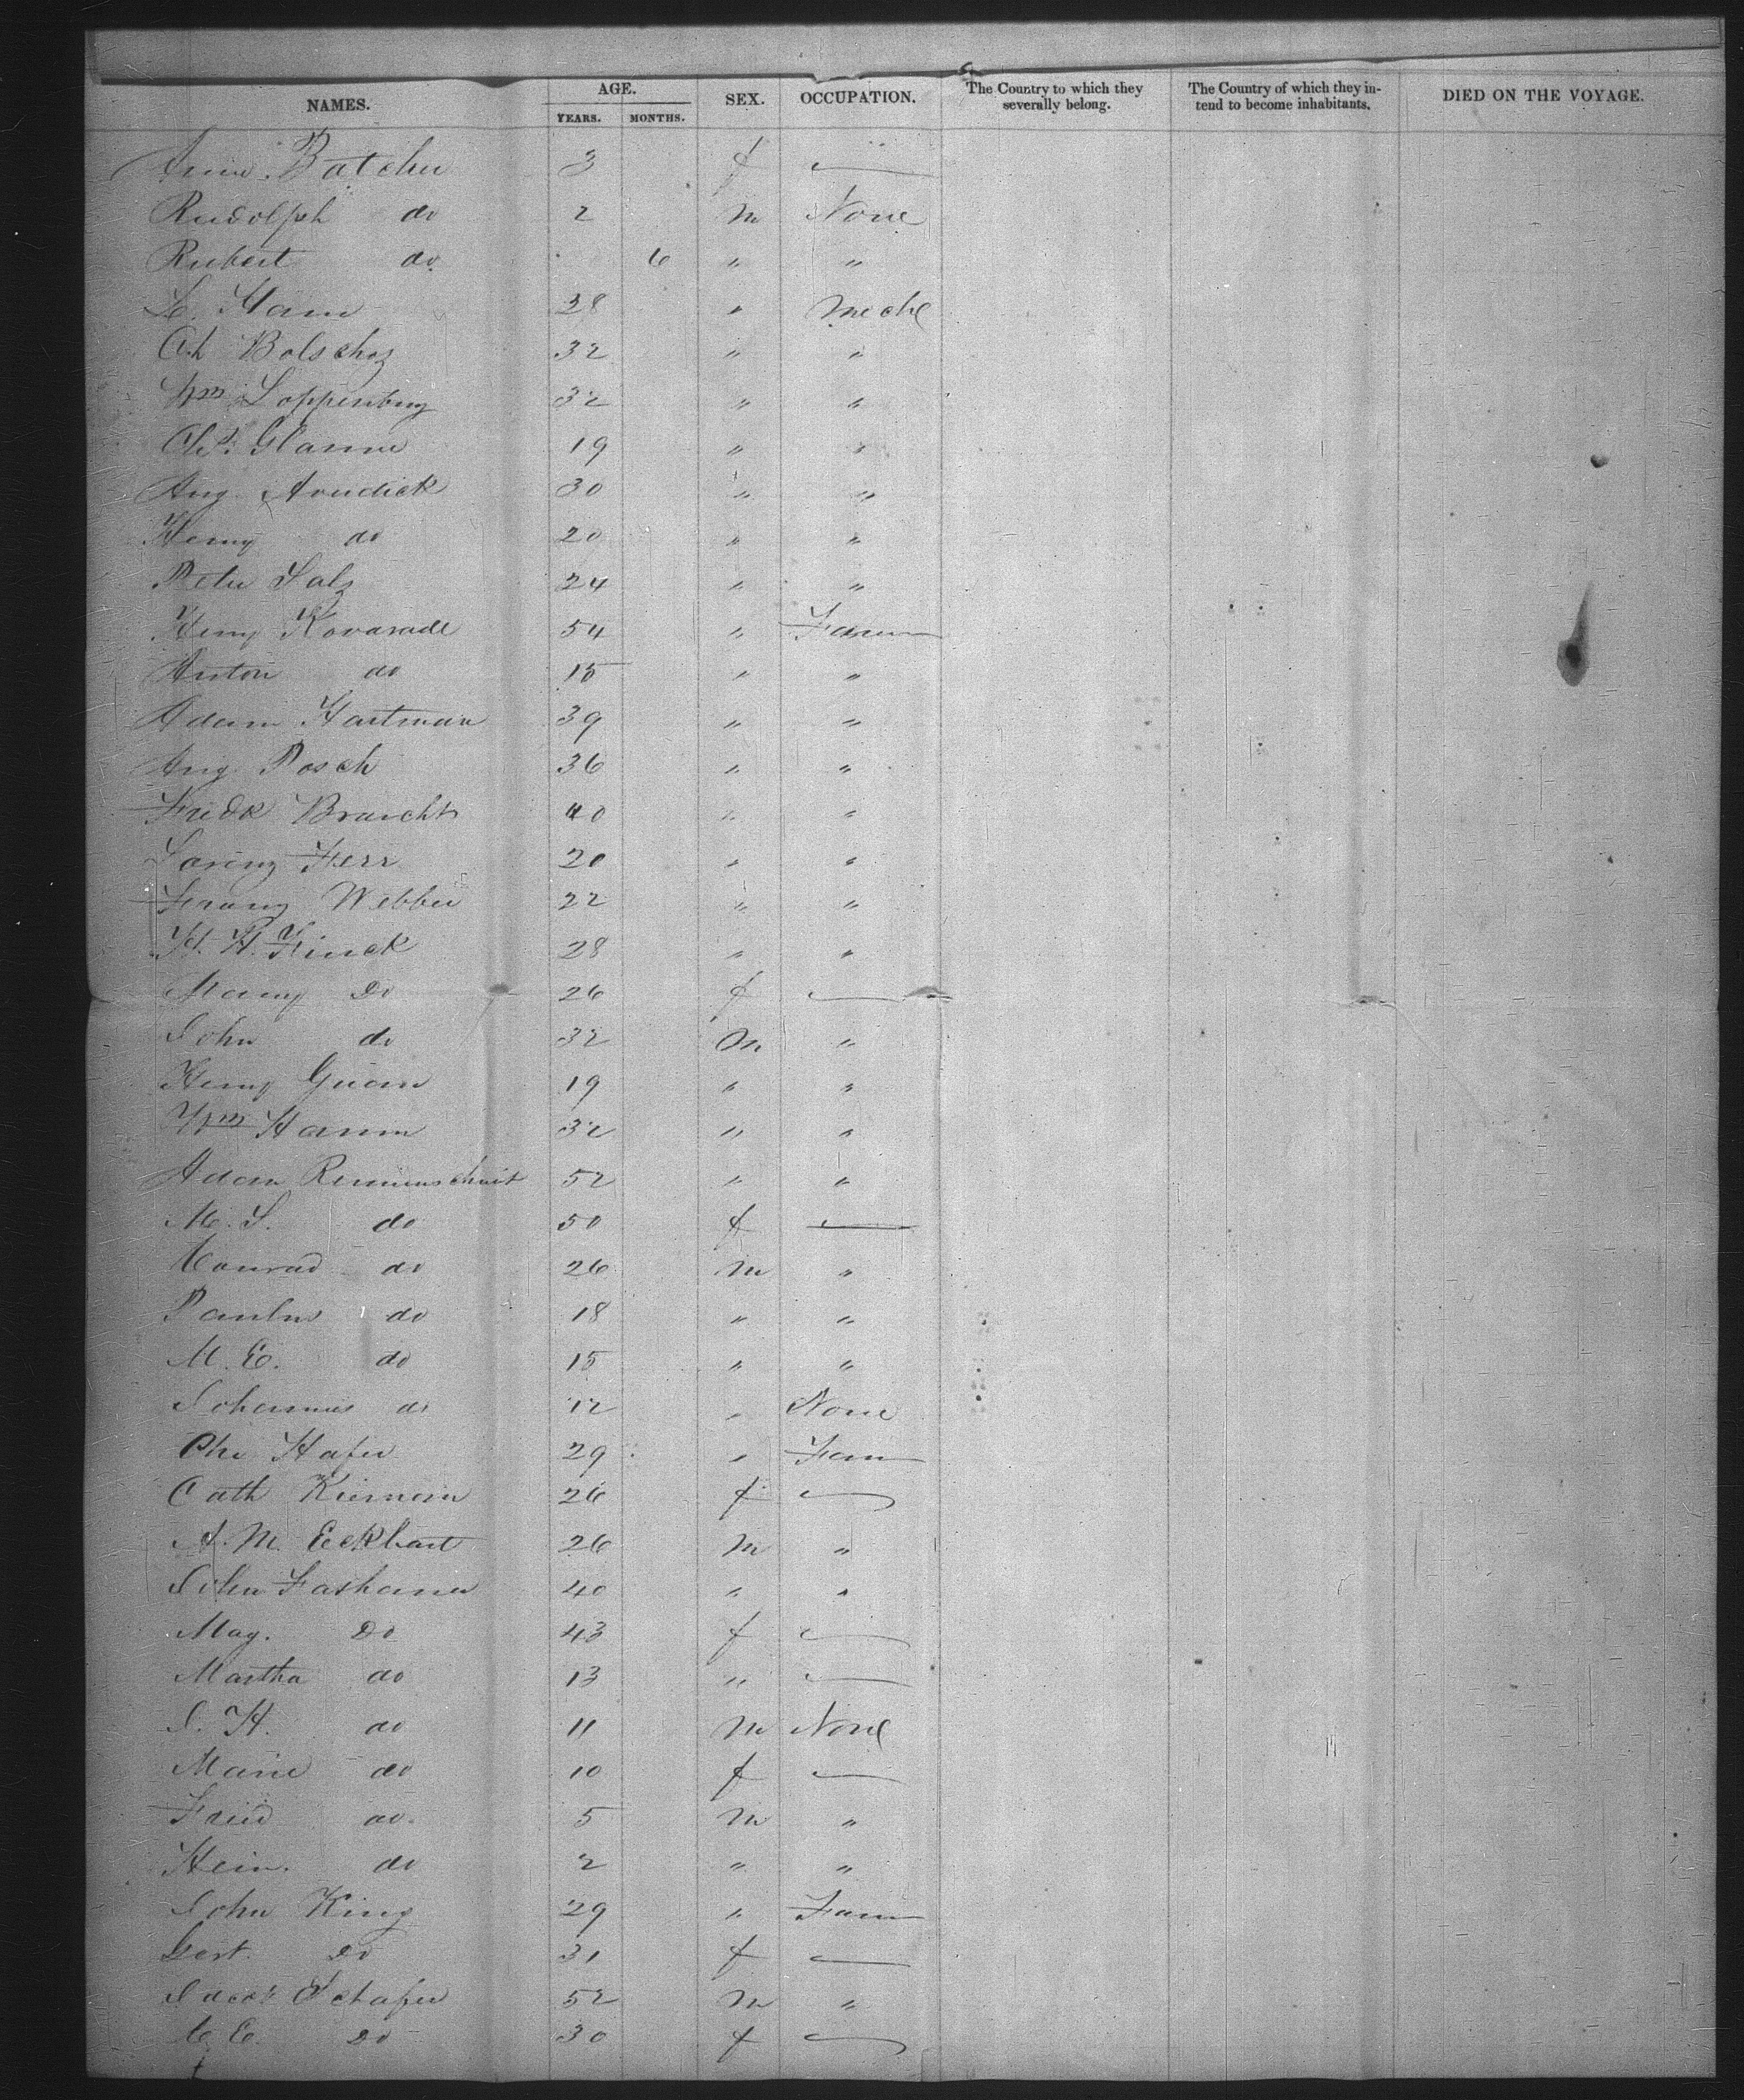 NAMES. AGE. SEX. OCCUPATION. The Country to which they severally belong. The Country of which they intend to become inhabitants. DIED ON THE VOYAGE.
YEARS. MONTHS.
Batcher 3 f —
Rudolph do 2 m None
Robert do 6 " "
28 " Mech
Ch 32 " "
Wm Loppenburg 32 " "
Chs. 19 " "
Aug. Arudick 30 " "
Henry do 20 " "
Peter Salz 24 " "
Henry 54 " Farm
Anton do 15 " "
Adam Hartman 39 " "
Aug. Posch 36 " "
Fredk Braucht 40 " "
Lorenz Ferr 20 " "
Franz Webber 22 " "
H. H. Finck 28 " "
Do 26 f —
John do 32 m "
Henry 19 " "
Wm Hamm 32 " "
Adam 52 " "
M. S. do 50 f —
Conrad do 26 m "
Paulus do 18 " "
M. E. do 15 " "
Johannes do 12 " None
Hafer 29 " Farm
Cath 26 f —
A. M. Eckhart 26 m "
John 40 " "
Mag. Do 43 f —
Martha do 13 " —
J. H. do 11 m None
Marie do 10 f —
Fried do 5 m "
Hein. do 2 " "
John King 29 " Farm
Gert. Do 31 f —
Jacob Schafer 52 m "
C. E. Do 30 f —